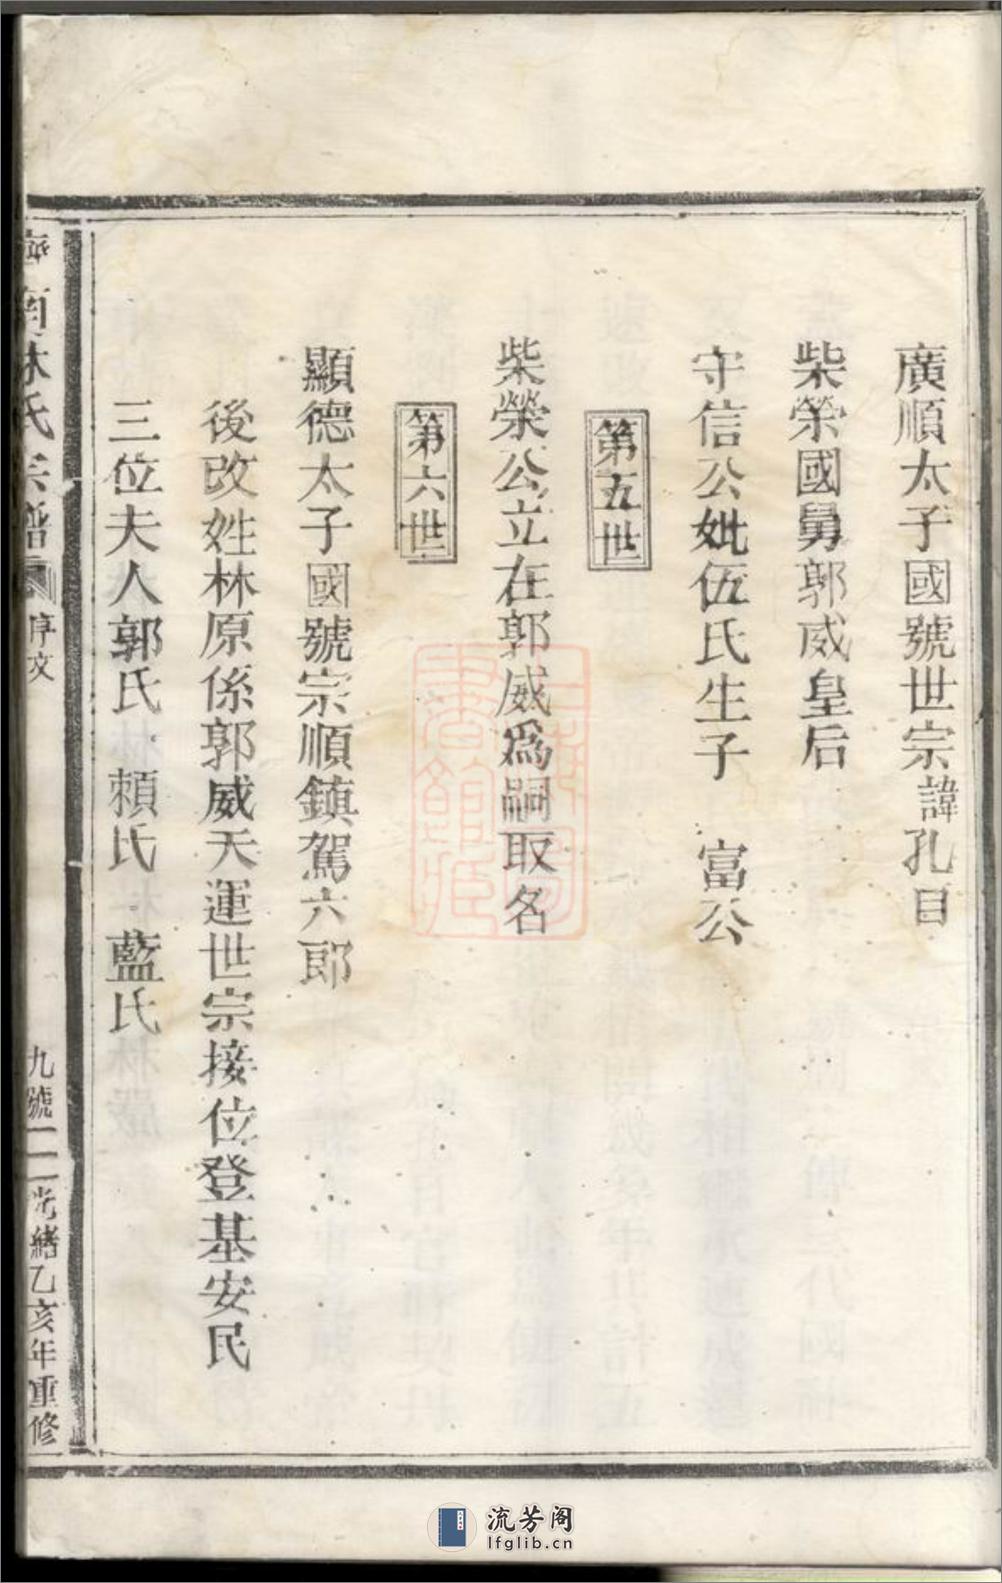 廣順太子國號世宗諱孔目
柴榮國舅郭威皇后
守信公妣伍氏生子　富公
第五世
柴榮公立在郭威為嗣取名
第六世
顯德太子國號宗順鎮駕六郎
後改姓林原係郭威天運世宗接位登基安民
三位夫人郭氏　賴氏　藍氏
南林氏宗譜　序文　九號　光緒乙亥年重修
流芳阁
lfglib.cn